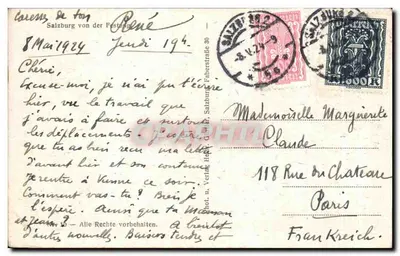 caresses de ton
René
Salzburg von der Festung
8 Mai 1924 Jeudi 194.
Chérie,
Excuse-moi, je n'ai pu t'écrire
hier, vu le travail que
j'avais à faire et surtout
les déplacements. J'espère
que tu as bien reçu ma lettre
d'avant hier et son contenu
Je rentre à Vienne ce soir.
Comment vas-tu? Bien, je
l'espère. Ainsi que ta Maman
et Jeanne? A bientôt
Alle Rechte vorbehalten.
d'autres nouvelles. Baisers tendres et
SALZBURG 2
-8.V.24-9
* 5a *
SALZBURG 2
Mademoiselle Marguerite
Claude
118 Rue du Chateau
Paris
Frankreich.